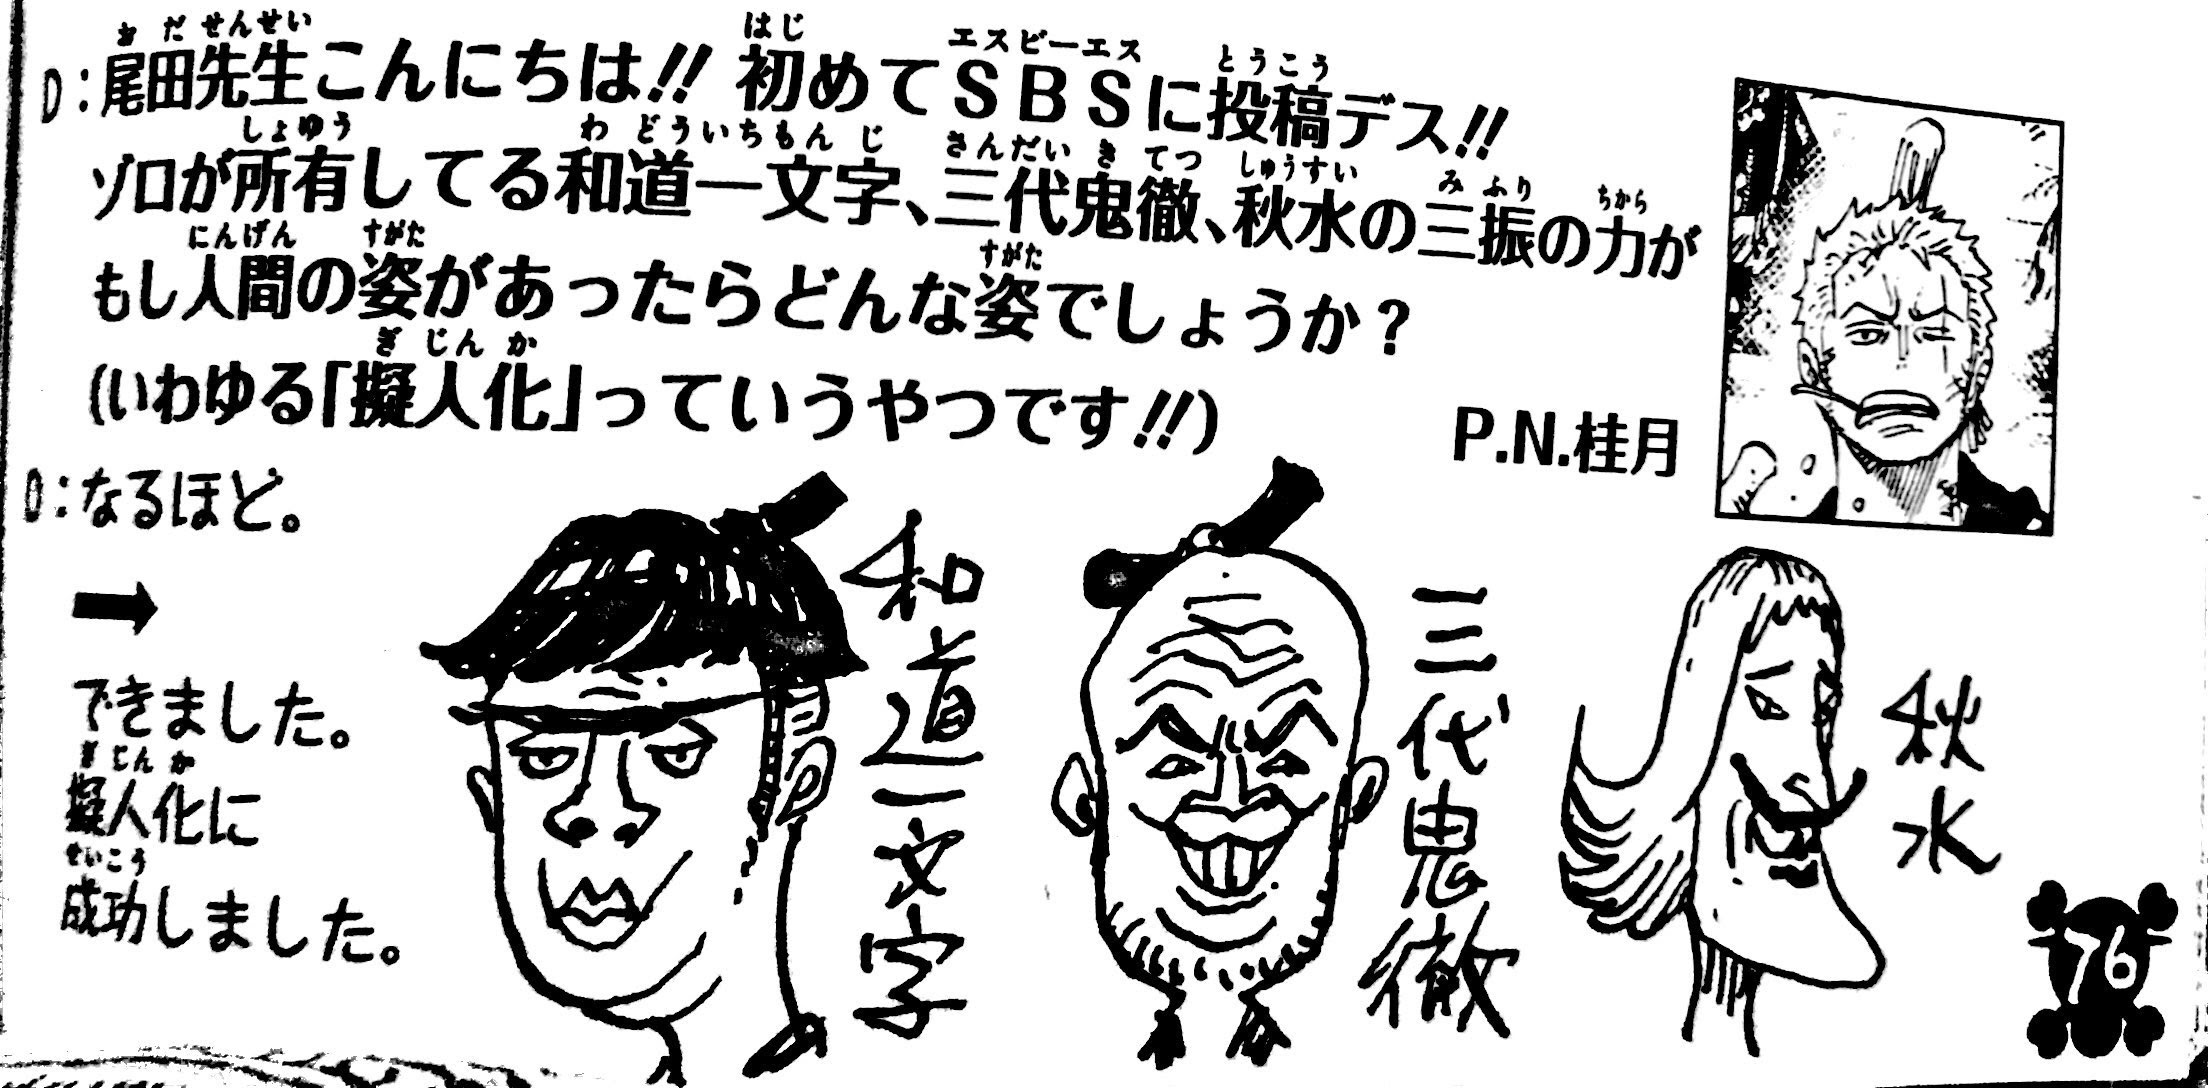 D:尾田先生こんにちは!! 初めてSBSに投稿デス!!
ゾロが所有してる和道一文字、三代鬼徹、秋水の三振の力が
もし人間の姿があったらどんな姿でしょうか？
(いわゆる「擬人化」っていうやつです!!)
P.N.桂月
O:なるほど。
できました。
擬人化に
成功しました。
和道一文字
三代鬼徹
秋水
76